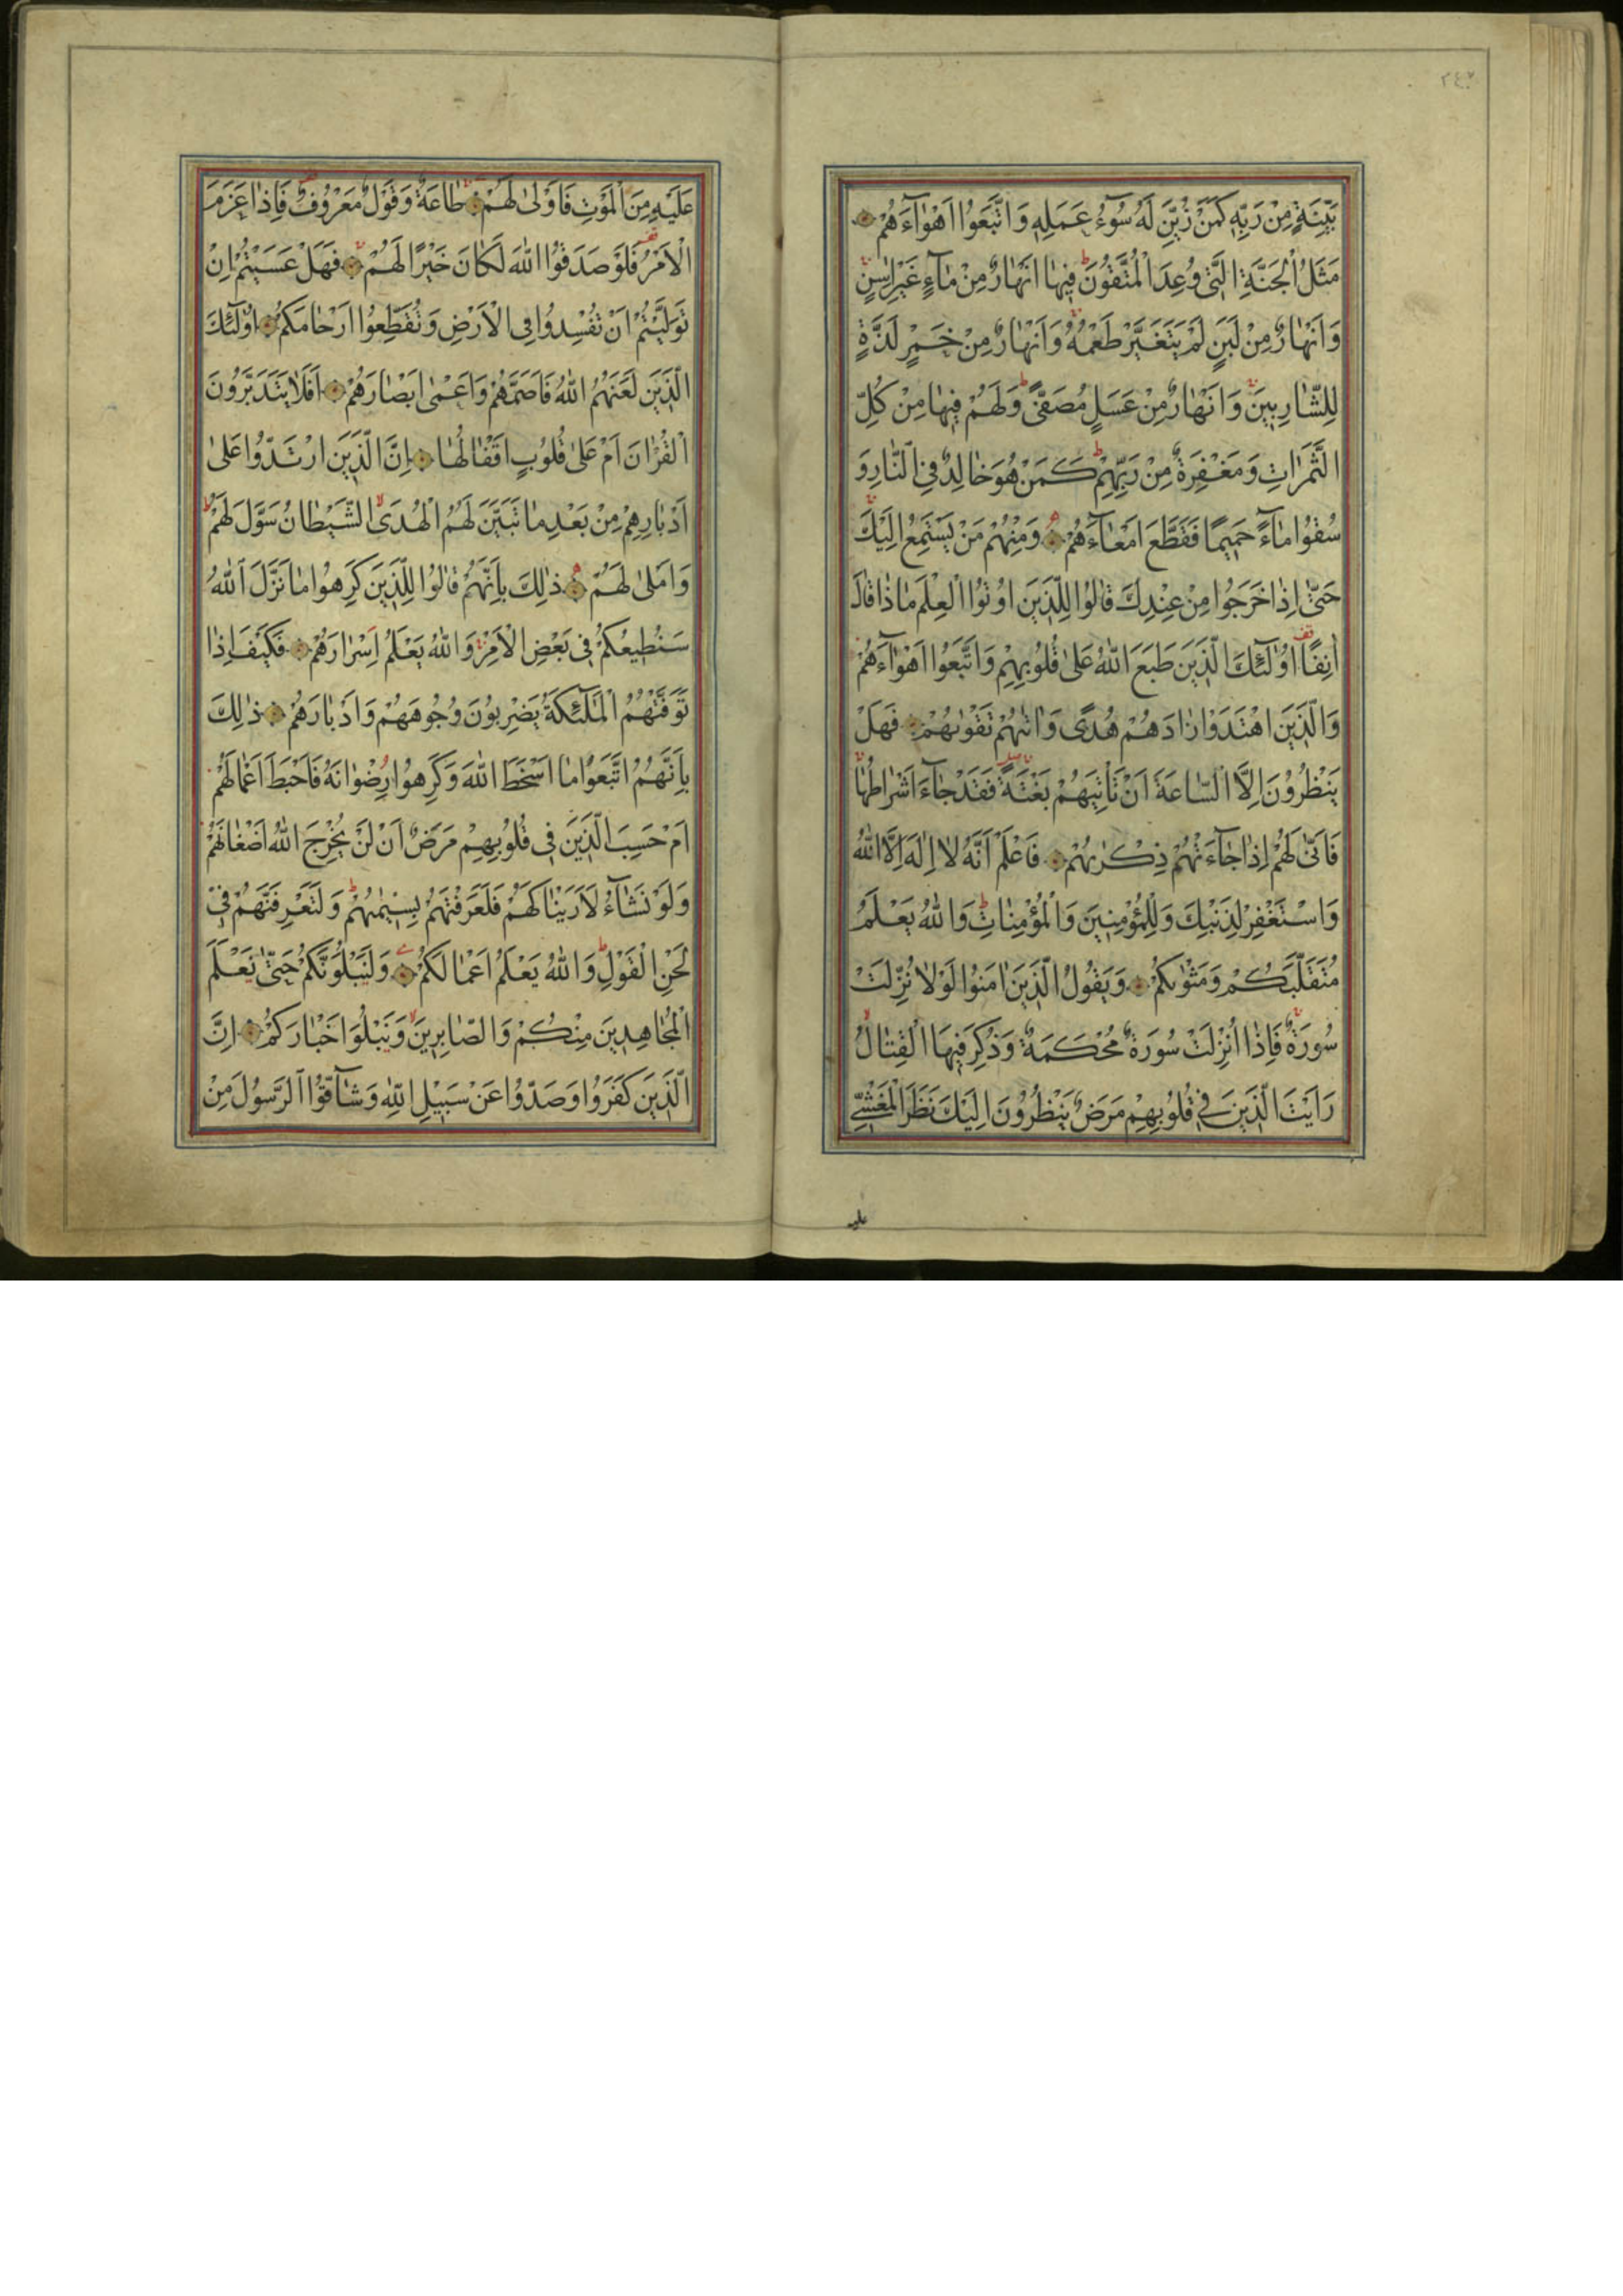 ٢٤٢
بَيِّنَةٍ مِنْ رَبِّهٖ كَمَنْ زُيِّنَ لَهُ سُوٓءُ عَمَلِهٖ وَاتَّبَعُوا اَهْوَاءَهُمْ
مَثَلُ الْجَنَّةِ الَّتٖى وُعِدَ الْمُتَّقُونَ فٖيهَا اَنْهَارٌ مِنْ مَاءٍ غَيْرِ اٰسِنٍ
وَاَنْهَارٌ مِنْ لَبَنٍ لَمْ يَتَغَيَّرْ طَعْمُهُ وَاَنْهَارٌ مِنْ خَمْرٍ لَذَّةٍ
لِلشَّارِبٖينَ وَاَنْهَارٌ مِنْ عَسَلٍ مُصَفًّى وَلَهُمْ فٖيهَا مِنْ كُلِّ
الثَّمَرَاتِ وَمَغْفِرَةٌ مِنْ رَبِّهِمْ كَمَنْ هُوَ خَالِدٌ فِى النَّارِ وَ
سُقُوا مَاءً حَمٖيمًا فَقَطَّعَ اَمْعَاءَهُمْ وَمِنْهُمْ مَنْ يَسْتَمِعُ اِلَيْكَ
حَتّٰى اِذَا خَرَجُوا مِنْ عِنْدِكَ قَالُوا لِلَّذٖينَ اُوتُوا الْعِلْمَ مَاذَا قَالَ
اٰنِفًا اُولٰئِكَ الَّذٖينَ طَبَعَ اللّٰهُ عَلٰى قُلُوبِهِمْ وَاتَّبَعُوا اَهْوَاءَهُمْ
وَالَّذٖينَ اهْتَدَوْا زَادَهُمْ هُدًى وَاٰتٰيهُمْ تَقْوٰيهُمْ فَهَلْ
يَنْظُرُونَ اِلَّا السَّاعَةَ اَنْ تَاْتِيَهُمْ بَغْتَةً فَقَدْ جَاءَ اَشْرَاطُهَا
فَاَنّٰى لَهُمْ اِذَا جَاءَتْهُمْ ذِكْرٰيهُمْ فَاعْلَمْ اَنَّهُ لَا اِلٰهَ اِلَّا اللّٰهُ
وَاسْتَغْفِرْ لِذَنْبِكَ وَلِلْمُؤْمِنٖينَ وَالْمُؤْمِنَاتِ وَاللّٰهُ يَعْلَمُ
مُتَقَلَّبَكُمْ وَمَثْوٰيكُمْ وَيَقُولُ الَّذٖينَ اٰمَنُوا لَوْلَا نُزِّلَتْ
سُورَةٌ فَاِذَا اُنْزِلَتْ سُورَةٌ مُحْكَمَةٌ وَذُكِرَ فٖيهَا الْقِتَالُ
رَاَيْتَ الَّذٖينَ فٖى قُلُوبِهِمْ مَرَضٌ يَنْظُرُونَ اِلَيْكَ نَظَرَ الْمَغْشِىِّ
عليه
عَلَيْهِ مِنَ الْمَوْتِ فَاَوْلٰى لَهُمْ طَاعَةٌ وَقَوْلٌ مَعْرُوفٌ فَاِذَا عَزَمَ
الْاَمْرُ فَلَوْ صَدَقُوا اللّٰهَ لَكَانَ خَيْرًا لَهُمْ فَهَلْ عَسَيْتُمْ اِنْ
تَوَلَّيْتُمْ اَنْ تُفْسِدُوا فِى الْاَرْضِ وَتُقَطِّعُوا اَرْحَامَكُمْ اُولٰئِكَ
الَّذٖينَ لَعَنَهُمُ اللّٰهُ فَاَصَمَّهُمْ وَاَعْمٰى اَبْصَارَهُمْ اَفَلَا يَتَدَبَّرُونَ
الْقُرْاٰنَ اَمْ عَلٰى قُلُوبٍ اَقْفَالُهَا اِنَّ الَّذٖينَ ارْتَدُّوا عَلٰى
اَدْبَارِهِمْ مِنْ بَعْدِ مَا تَبَيَّنَ لَهُمُ الْهُدَى الشَّيْطَانُ سَوَّلَ لَهُمْ
وَاَمْلٰى لَهُمْ ذٰلِكَ بِاَنَّهُمْ قَالُوا لِلَّذٖينَ كَرِهُوا مَا نَزَّلَ اللّٰهُ
سَنُطٖيعُكُمْ فٖى بَعْضِ الْاَمْرِ وَاللّٰهُ يَعْلَمُ اِسْرَارَهُمْ فَكَيْفَ اِذَا
تَوَفَّتْهُمُ الْمَلٰئِكَةُ يَضْرِبُونَ وُجُوهَهُمْ وَاَدْبَارَهُمْ ذٰلِكَ
بِاَنَّهُمُ اتَّبَعُوا مَا اَسْخَطَ اللّٰهَ وَكَرِهُوا رِضْوَانَهُ فَاَحْبَطَ اَعْمَالَهُمْ
اَمْ حَسِبَ الَّذٖينَ فٖى قُلُوبِهِمْ مَرَضٌ اَنْ لَنْ يُخْرِجَ اللّٰهُ اَضْغَانَهُمْ
وَلَوْ نَشَاءُ لَاَرَيْنَاكَهُمْ فَلَعَرَفْتَهُمْ بِسٖيمٰيهُمْ وَلَتَعْرِفَنَّهُمْ فٖى
لَحْنِ الْقَوْلِ وَاللّٰهُ يَعْلَمُ اَعْمَالَكُمْ وَلَنَبْلُوَنَّكُمْ حَتّٰى نَعْلَمَ
الْمُجَاهِدٖينَ مِنْكُمْ وَالصَّابِرٖينَ وَنَبْلُوَا اَخْبَارَكُمْ اِنَّ
الَّذٖينَ كَفَرُوا وَصَدُّوا عَنْ سَبٖيلِ اللّٰهِ وَشَاقُّوا الرَّسُولَ مِنْ